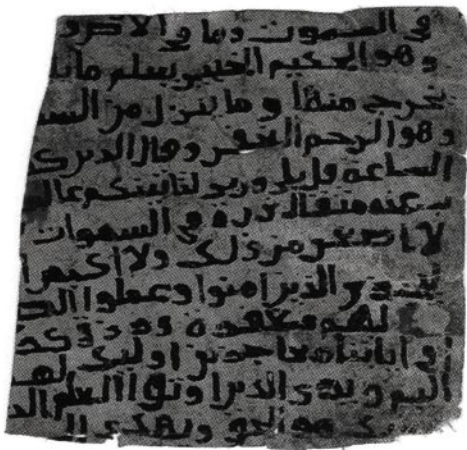 في السموت وما في الارض
وهو الحكيم الخبير يعلم ما يل
يخرج منها وما ينزل من السم
وهو الرحيم الغفور وقال الذين ك
الساعه قل بلى وربي لتاتينكم عالم
ب عنه مثقال ذره في السموات
لا اصغر من ذلك ولا اكبر ا
ليجزي الذين امنوا وعملوا الص
لهم مغفره ورزق ك
في اياتنا معاجزين اوليك لهم
اليم ويرى الذين اوتوا العلم الذ
ك هو الحق ويهدي ال